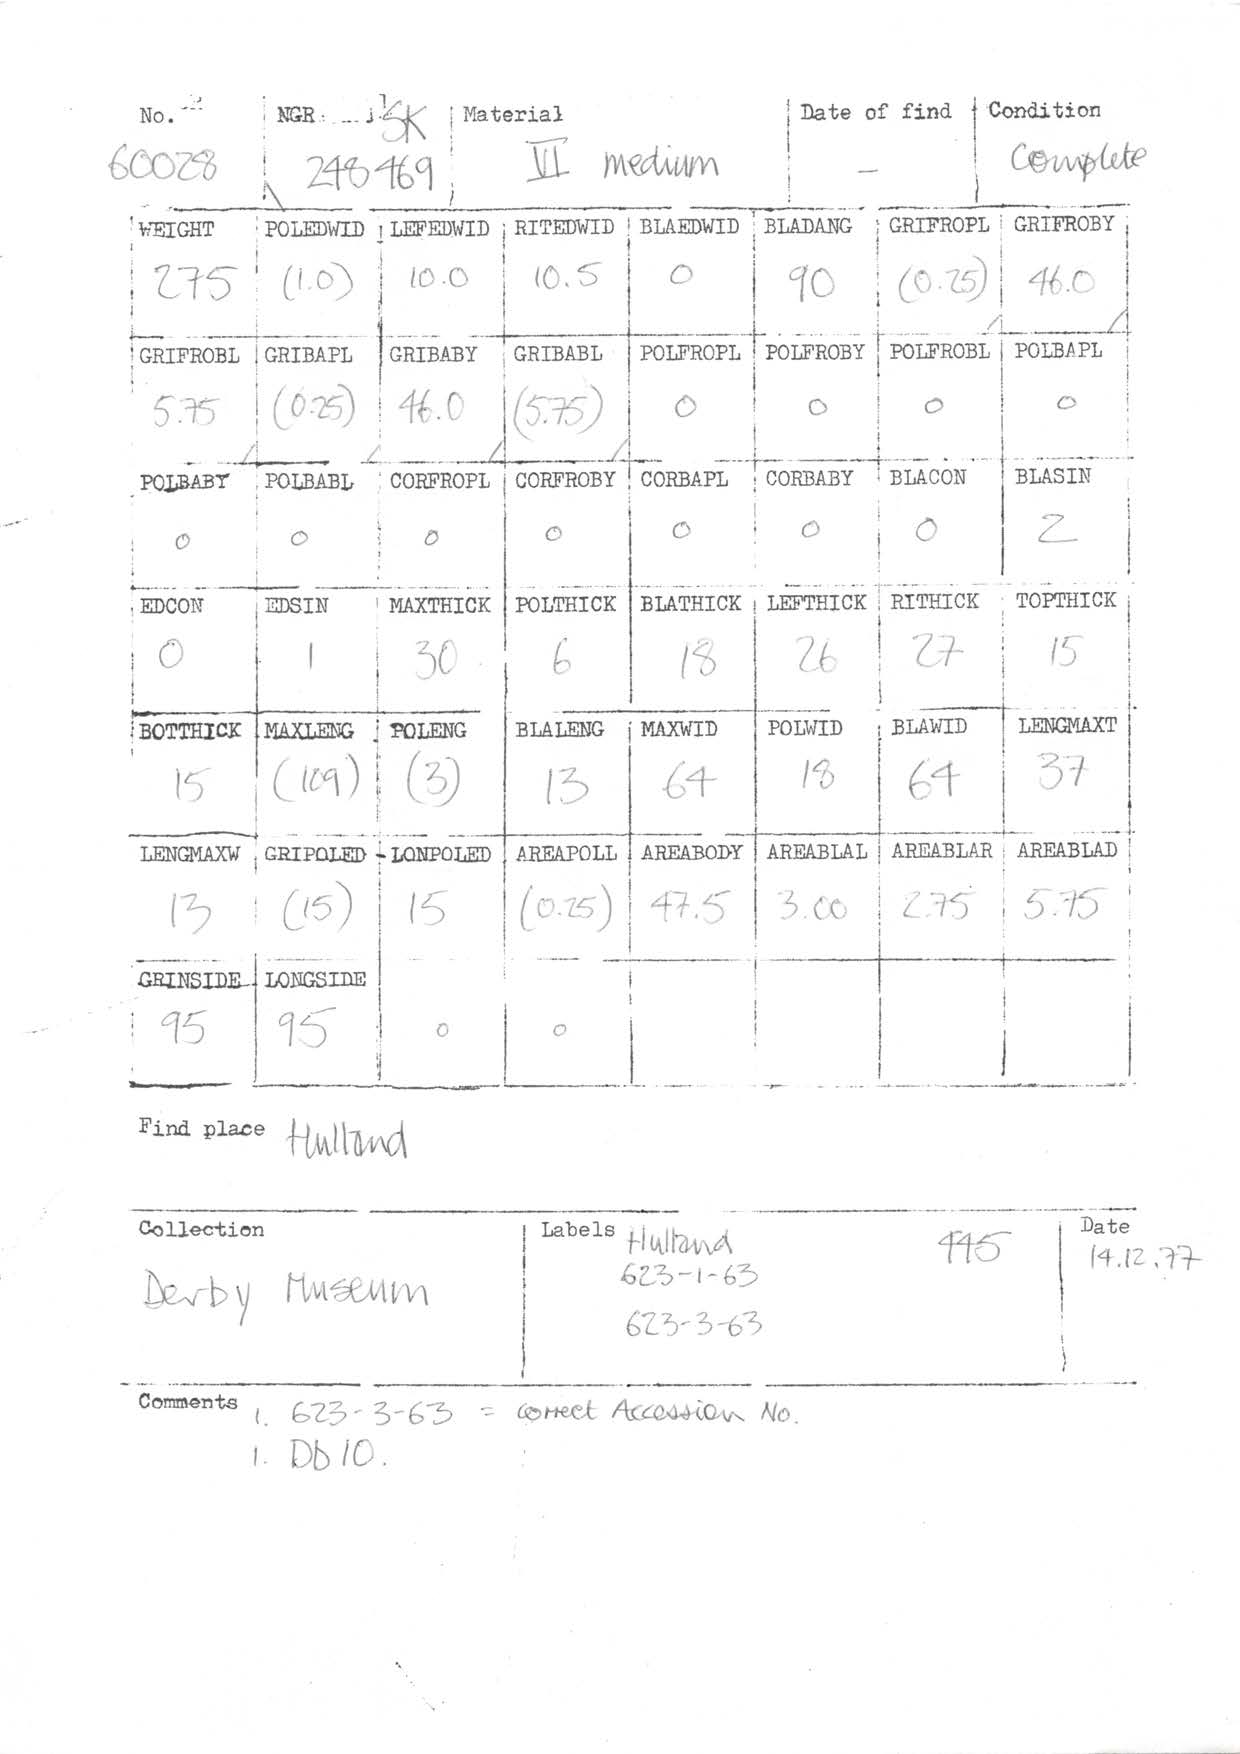 No. NGR SK Material Date of find Condition
60028 248469 VI medium – Complete
WEIGHT POLEDWID LEFEDWID RITEDWID BLAEDWID BLADANG GRIFROPL GRIFROBY
275 (1.0) 10.0 10.5 0 90 (0.25) 46.0
GRIFROBL GRIBAPL GRIBABY GRIBABL POLFROPL POLFROBY POLFROBL POLBAPL
5.75 (0.25) 46.0 (5.75) 0 0 0 0
POLBABY POLBABL CORFROPL CORFROBY CORBAPL CORBABY BLACON BLASIN
0 0 0 0 0 0 0 2
EDCON EDSIN MAXTHICK POLTHICK BLATHICK LEFTHICK RITHICK TOPTHICK
0 1 30 6 18 26 27 15
BOTTHICK MAXLENG POLENG BLALENG MAXWID POLWID BLAWID LENGMAXT
15 (109) (3) 13 64 18 64 37
LENGMAXW GRIPOLED LONPOLED AREAPOLL AREABODY AREABLAL AREABLAR AREABLAD
13 (15) 15 (0.25) 47.5 3.00 2.75 5.75
GRINSIDE LONGSIDE
95 95 0 0
Find place Hulland
Collection Labels Hulland 445 Date
623-1-63 14.12.77
Derby Museum
623-3-63
Comments 1. 623-3-63 = correct Accession No.
1. Db 10.